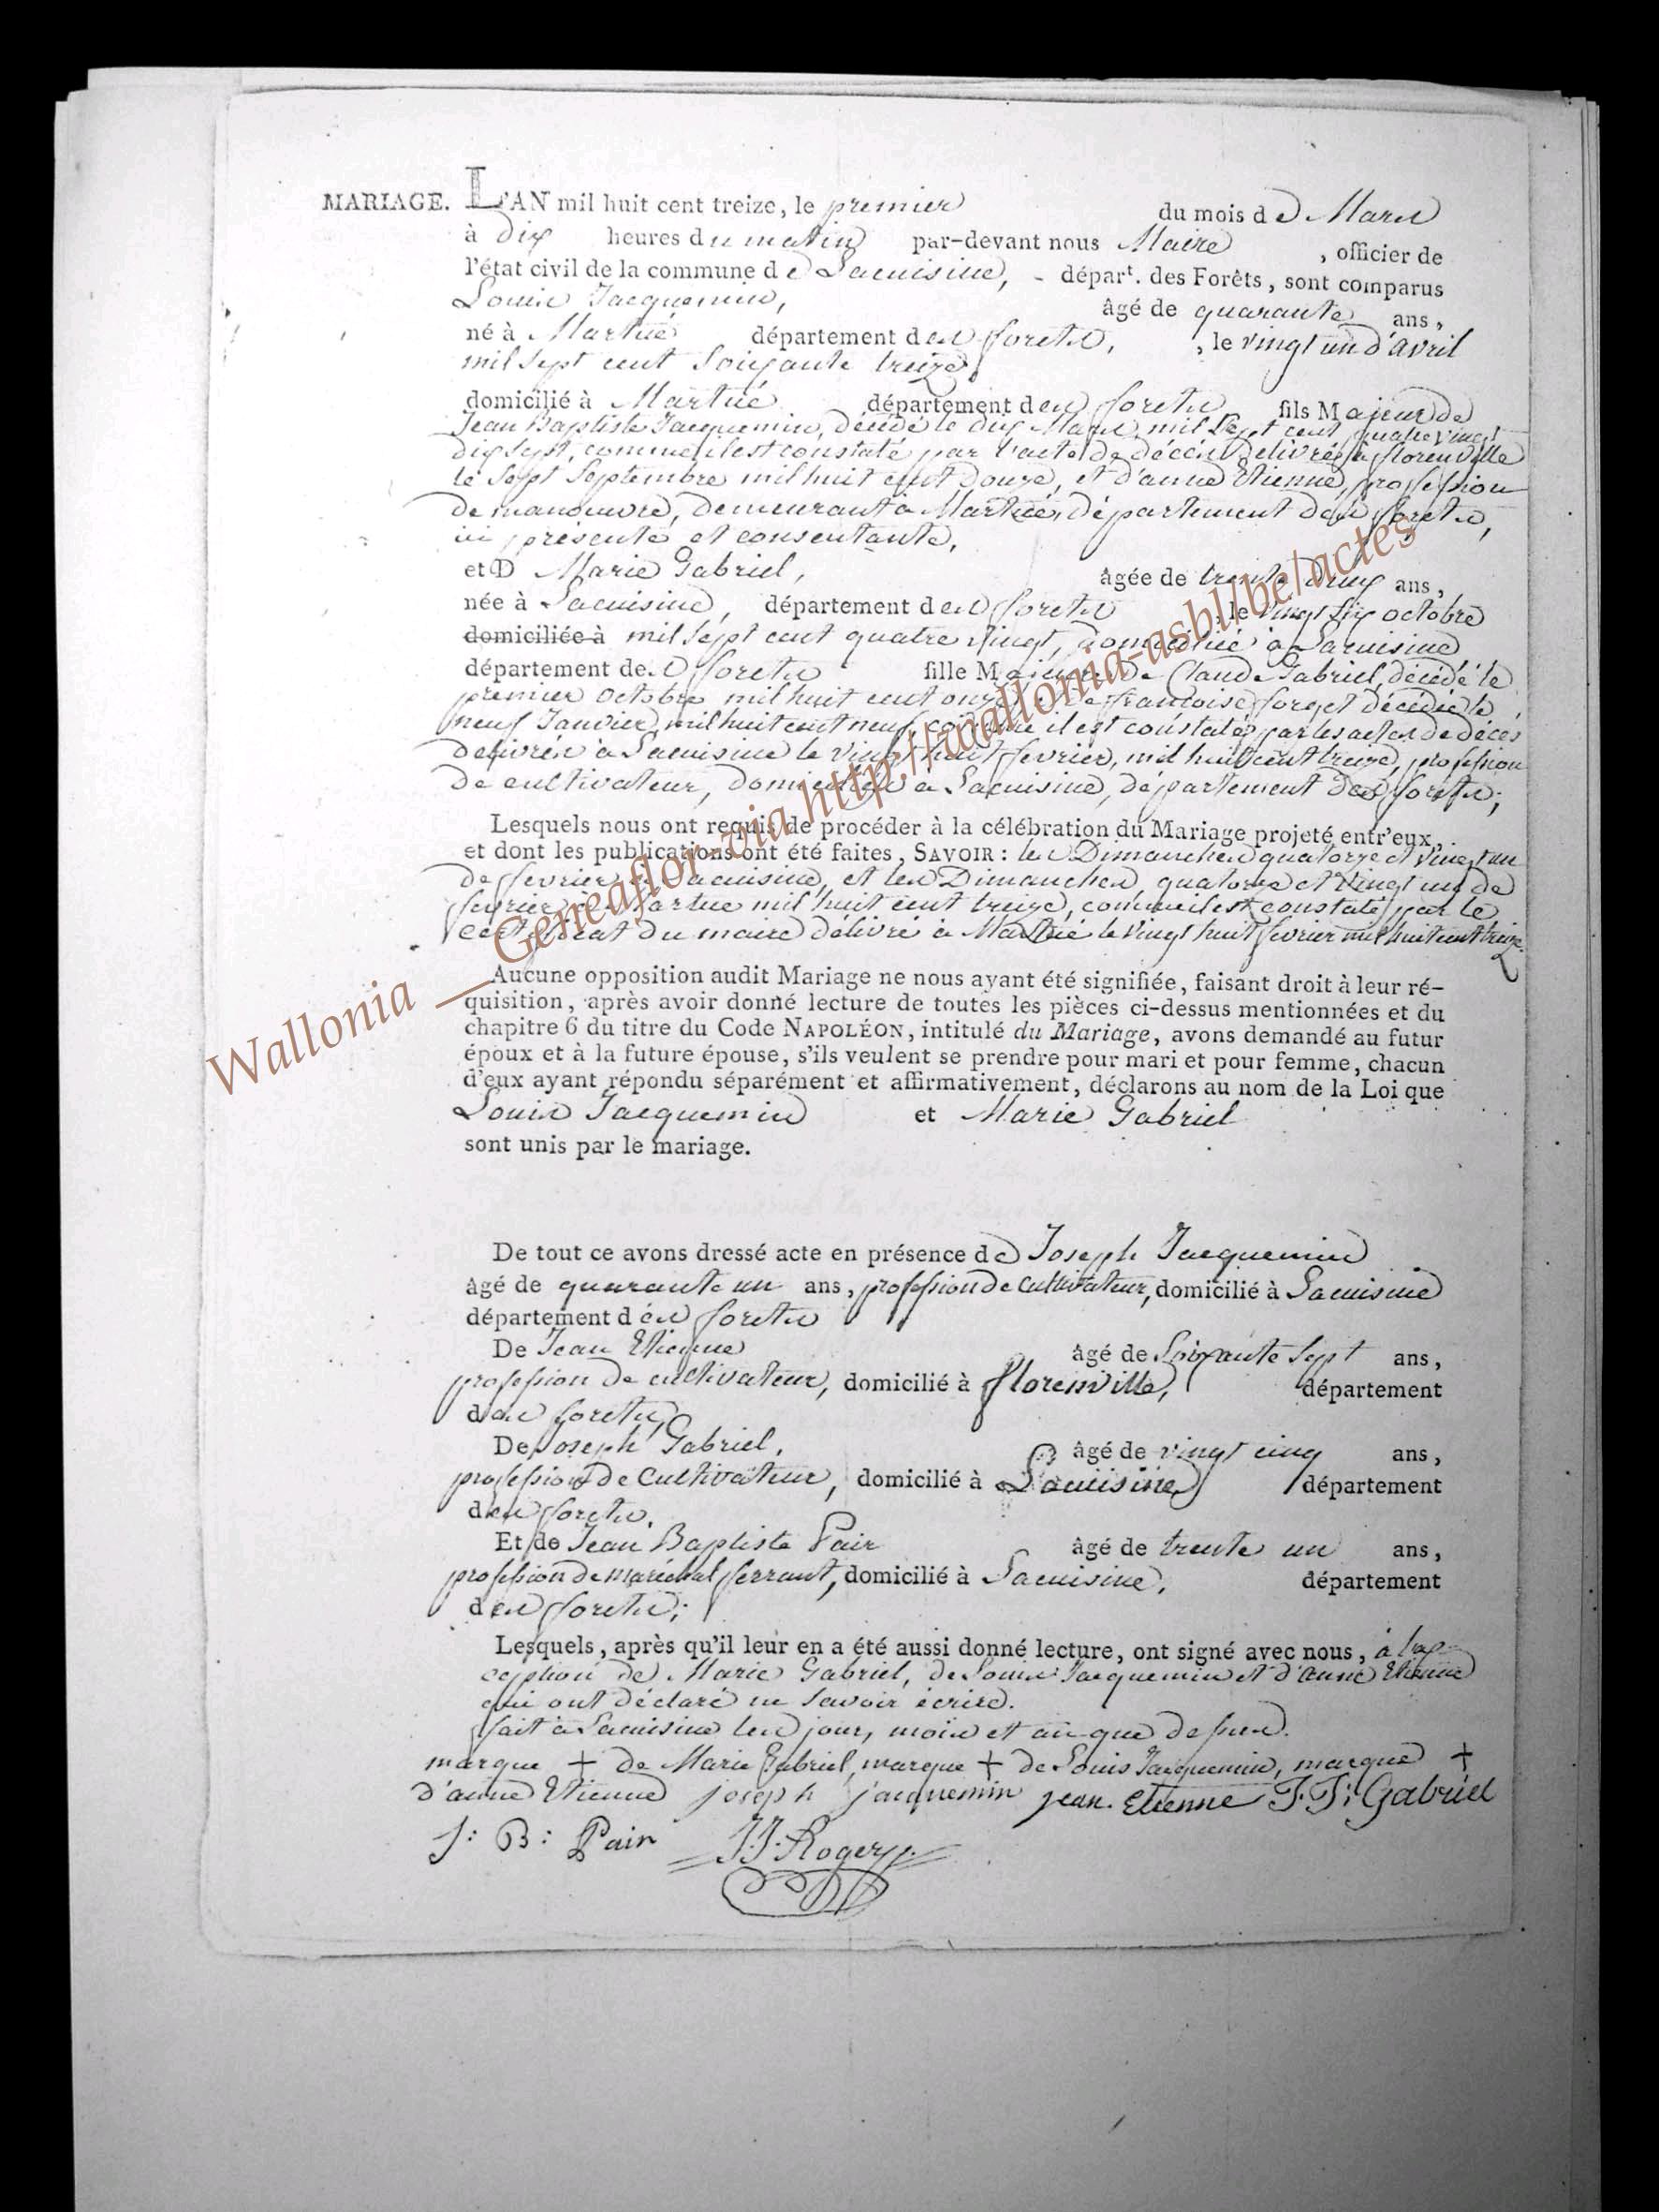 MARIAGE. L'AN mil huit cent treize, le premier du mois de Mars
à dix heures du matin par-devant nous Maire, officier de
l'état civil de la commune de Lacuisine, - départ. des Forêts, sont comparus
Louis Jacquemin, âgé de quarante ans,
né à Martué département des forets, , le vingt un d'avril
mil sept cent soixante treize,
domicilié à Martué département des forets fils Majeur de
Jean Baptiste Jacquemin, décédé le dix Mars, mil Sept cent quatre vingt
dix sept, comme il est constaté par l'acte de décès délivré à florenville
le sept Septembre mil huit cent douze, et d'anne Etienne, profession
de manoeuvre, demeurant à Martué, département des forets,
ici présente et consentante,
et D Marie Gabriel, âgée de trente deux ans,
née à Lacuisine, département des forets , le vingt six octobre
domiciliée à mil sept cent quatre vingt, domiciliée à Lacuisine
département des forets fille Majeure de Claude Gabriel, décédé le
premier octobre mil huit cent onze, de francoise forget décédée le
neuf Janvier mil huit cent neuf, comme il est constaté par les actes de décès
délivrés à Lacuisine le vingt huit fevrier, mil huit cent treize, profession
de cultivateur, domiciliés à Lacuisine, département des forets;
Lesquels nous ont requis de procéder à la célébration du Mariage projeté entr'eux,
et dont les publications ont été faites, SAVOIR : les Dimanches quatorze et vingt un
de fevrier à Lacuisine, et les Dimanches quatorze et vingt un de
fevrier à Martué mil huit cent treize, comme il est constaté par le
certificat du maire délivré à Martué le vingt huit fevrier mil huit cent treize.
Aucune opposition audit Mariage ne nous ayant été signifiée, faisant droit à leur ré-
quisition, après avoir donné lecture de toutes les pièces ci-dessus mentionnées et du
chapitre 6 du titre du Code NAPOLÉON, intitulé du Mariage, avons demandé au futur
époux et à la future épouse, s'ils veulent se prendre pour mari et pour femme, chacun
d'eux ayant répondu séparément et affirmativement, déclarons au nom de la Loi que
Louis Jacquemin et Marie Gabriel
sont unis par le mariage.
De tout ce avons dressé acte en présence de Joseph Jacquemin
âgé de quarante un ans, profession de cultivateur, domicilié à Lacuisine
département des forets
De Jean Etienne âgé de soixante sept ans,
profession de cultivateur, domicilié à florenville, département
des forets
De Joseph Gabriel, âgé de vingt cinq ans,
profession de Cultivateur, domicilié à Lacuisine, département
des forets.
Et de Jean Baptiste Pair âgé de trente un ans,
profession de maréchal ferrant, domicilié à Lacuisine, département
des forets;
Lesquels, après qu'il leur en a été aussi donné lecture, ont signé avec nous, à l'ex-
ception de Marie Gabriel, de Louis Jacquemin et d'anne Etienne
qui ont déclaré ne savoir écrire.
fait à Lacuisine les jour, mois et an que dessus.
marque + de Marie Gabriel, marque + de Louis Jacquemin, marque +
d'anne Etienne joseph jacquemin jean Etienne J. J: Gabriel
J: B: Pair J. J. Roger
Wallonia __ Geneaflor via http://wallonia-asbl/be/actes